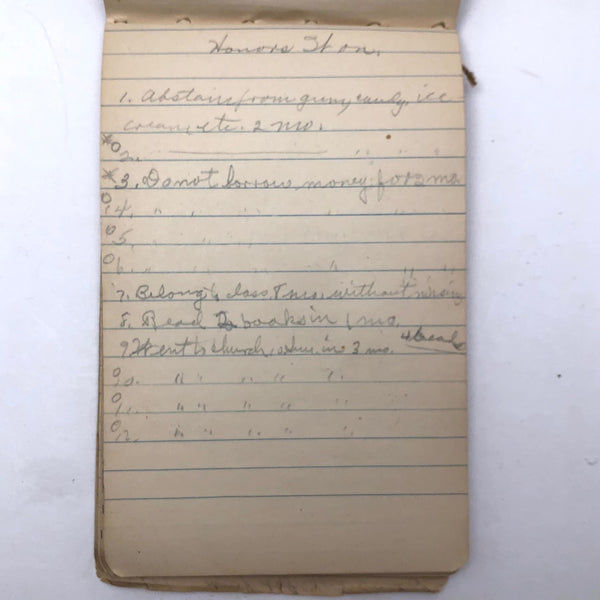 Honors
1. Abstain from gum, candy, ice
cream, etc. 2 mo.
*o 2. " " "
* 3. Do not borrow money for 2 mo
o 4. " " " " "
o 5. " " " "
o 6. " " " " " "
7. Belong class mo. without missing
8. Read books in 1 mo.
9. Went to church in 3 mo.
o 10. " " " " "
o 11. " " " " "
o 12. " " " " "